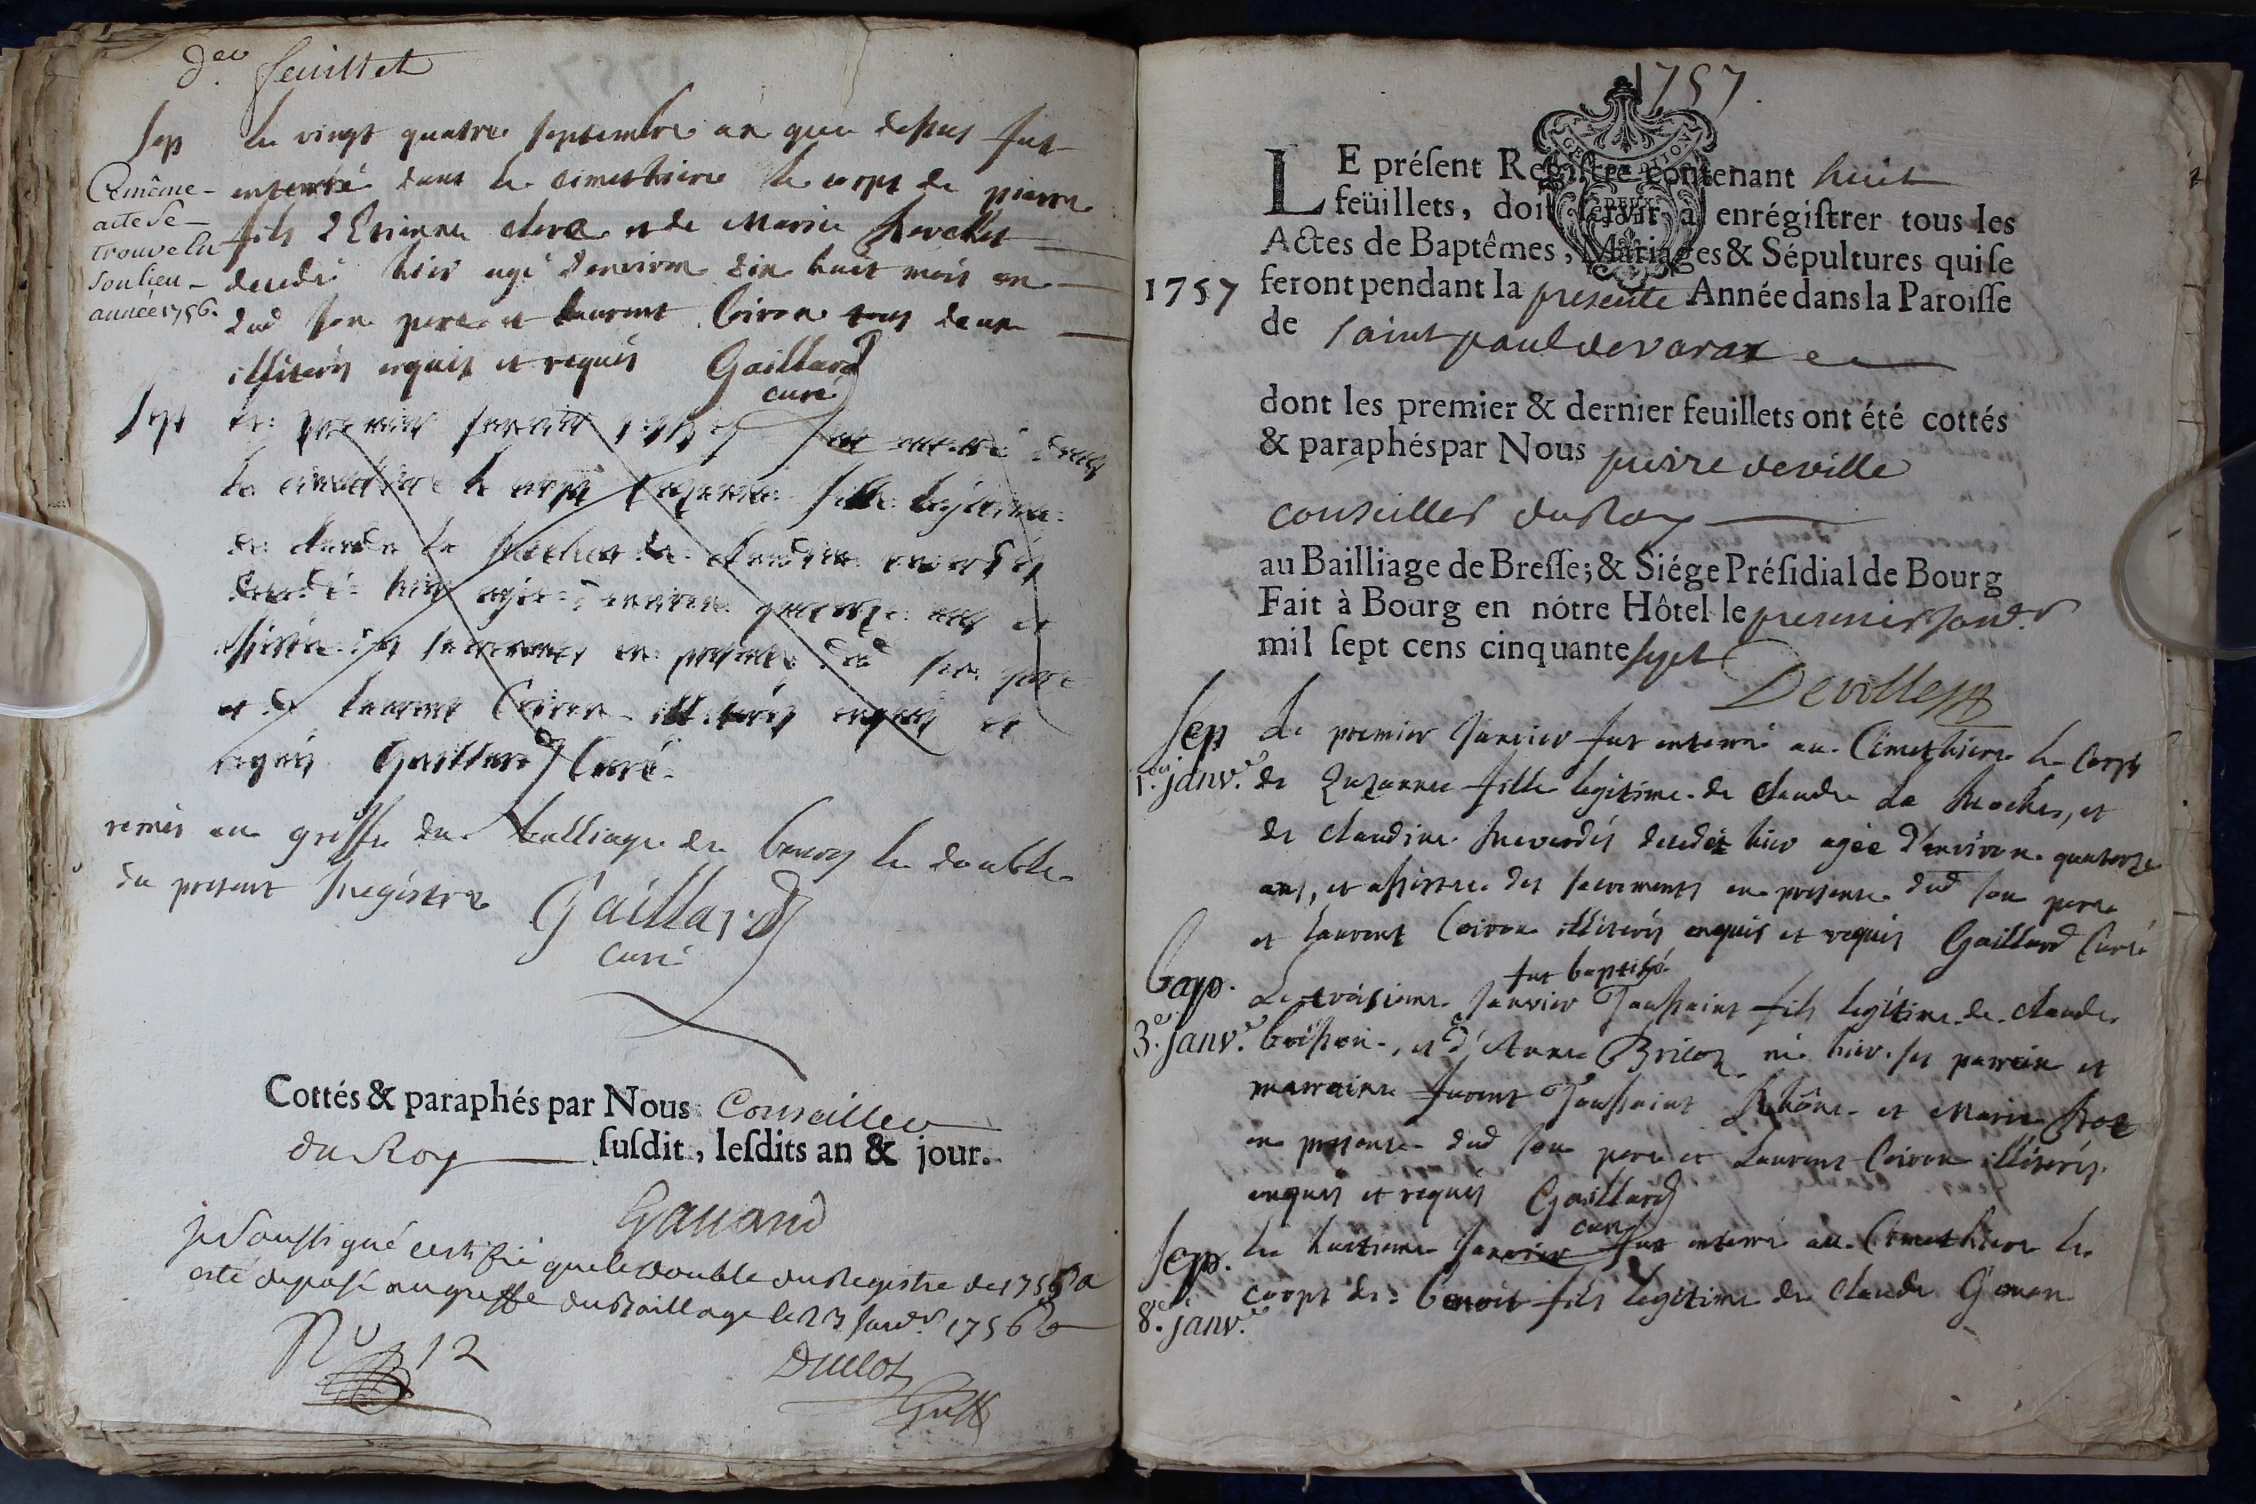 der feuillet
Sep le vingt quatre septembre an que dessus fut
enterré dans le cimethiere le corps de pierre
fils d'Etienne clerc et de Marie
decedé hier agé d'environ dix huit mois en
dud son pere et laurent Coiron tous deux
illiterés enquis et requis Gaillard
curé
Ce même
acte se
trouve en
son lieu
année 1756.
Sept le premier janvier 1757 fut enterré dans
le cimethiere le corps Suzanne fille legitime
de claude la de claudine
decedé hier agée d'environ quatorze ans et
assistée des sacrements en presence dud son pere
et de laurent Coiron illiterés enquis et
requis Gaillard Curé
remis au greffe du balliage de bourg le double
du present Registre Gaillard
curé
Cottés & paraphés par Nous Conseiller
du Roy suſdit, leſdits an & jour.
Je Soussigné certiffie que le double du Registre de 1756 a
esté deposé au greffe du Bailliage le 23 janv.r 1756
12
Duclos
Greff
1757.
GENERATION
DEUX
LE préſent Regiſtre contenant huit
feüillets, doit ſervir à enrégiſtrer tous les
Actes de Baptêmes, Mariages & Sépultures qui ſe
1757 feront pendant la presente Année dans la Paroiſſe
de saint paul de varax
dont les premier & dernier feuillets ont été cottés
& paraphés par Nous pierre deville
conseiller du Roy
au Bailliage de Breſſe; & Siége Préſidial de Bourg
Fait à Bourg en nótre Hôtel le premier janv.r
mil ſept cens cinquante sept
Deville
Sep Le premier Janvier fut enterré au Cimethiere le Corps
1.er janv.er de Zuzanne fille legitime de claude La Roche, et
de claudine Reverdis decedée hier agée d'environ quatorze
ans, et assistée des sacrements en presence dud son pere
et laurent Coiron illiterés enquis et requis Gaillard Curé
fut baptisé
Bap. Le troisieme Janvier Toussaint fils legitime de claude
3.e janv.er boisson, et d'Anne Bricoz né hier. ses parrein et
marraine furent Toussaint Rhône et Marie Roz
en presence dud son pere et Laurent Coiron illiterés
enquis et requis Gaillard
curé
Sep. Le huitieme Janvier fut enterré au Cimethiere le
8.e janv.er corps de Benoit fils legitime de claude